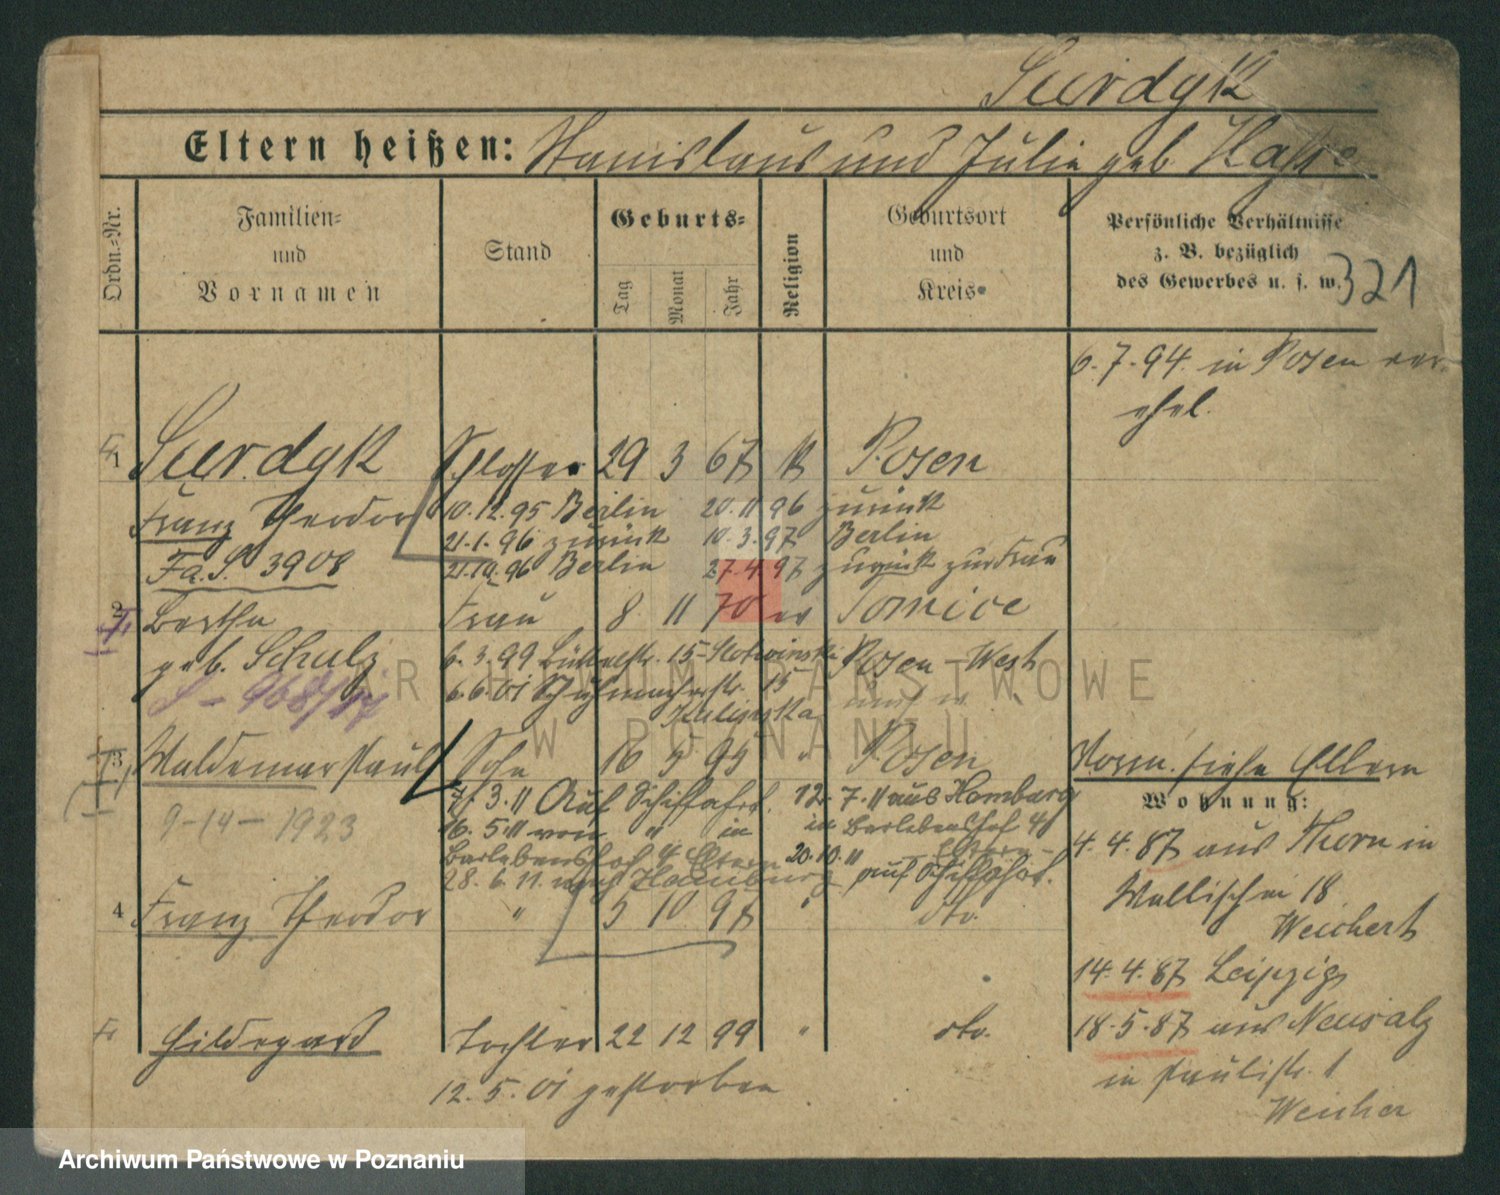 Surdyk
Eltern heißen: Stanislaus und Julie geb. Hasse
Ordn.=Nr.
Familien=
und
Vornamen
Stand
Geburts=
Tag
Monat
Jahr
Religion
Geburtsort
und
Kreis
Persönliche Verhältnisse
z. B. bezüglich
des Gewerbes u. s. w.
321
6.7.94. in Posen ver-
ehel.
1 Surdyk Schlosser 29 3 67 k Posen
Franz Theodor 10.12.95 Berlin 20.11.96 zurück
21.1.96 zurück 10.3.97 Berlin
Fa. S. 3908 21.10.96 Berlin 27.4.97 zurück zur Frau
2 Bertha Frau 8 11 70 ev Tornice
geb. Schulz 6.3.99 Büttelstr. 15 Slotwinska Posen West
6.6.01 Schuhmacherstr. 15
3 Waldemar Paul Sohn 16 5 95 " Posen
9-14-1923
7.3.11 Auf Schiffahrt. 12.7.11 aus Hamburg
16.5.11 von " in in Berlebenshof 4
Berlebenshof 4 Eltern 20.10.11 auf Schiffahrt.
28.6.11. nach Hamburg
4 Franz Theodor " 5 10 97 " dto.
Hildegard Tochter 22 12 99 " dto.
12.5.01 gestorben
Norm. siehe Eltern
Wohnung:
4.4.87 aus Thorn in
Wallischei 18
Weichert
14.4.87 Leipzig
18.5.87 aus Neusalz
in Paulistr. 1
Weicher
ARCHIWUM PAŃSTWOWE
W POZNANIU
Archiwum Państwowe w Poznaniu